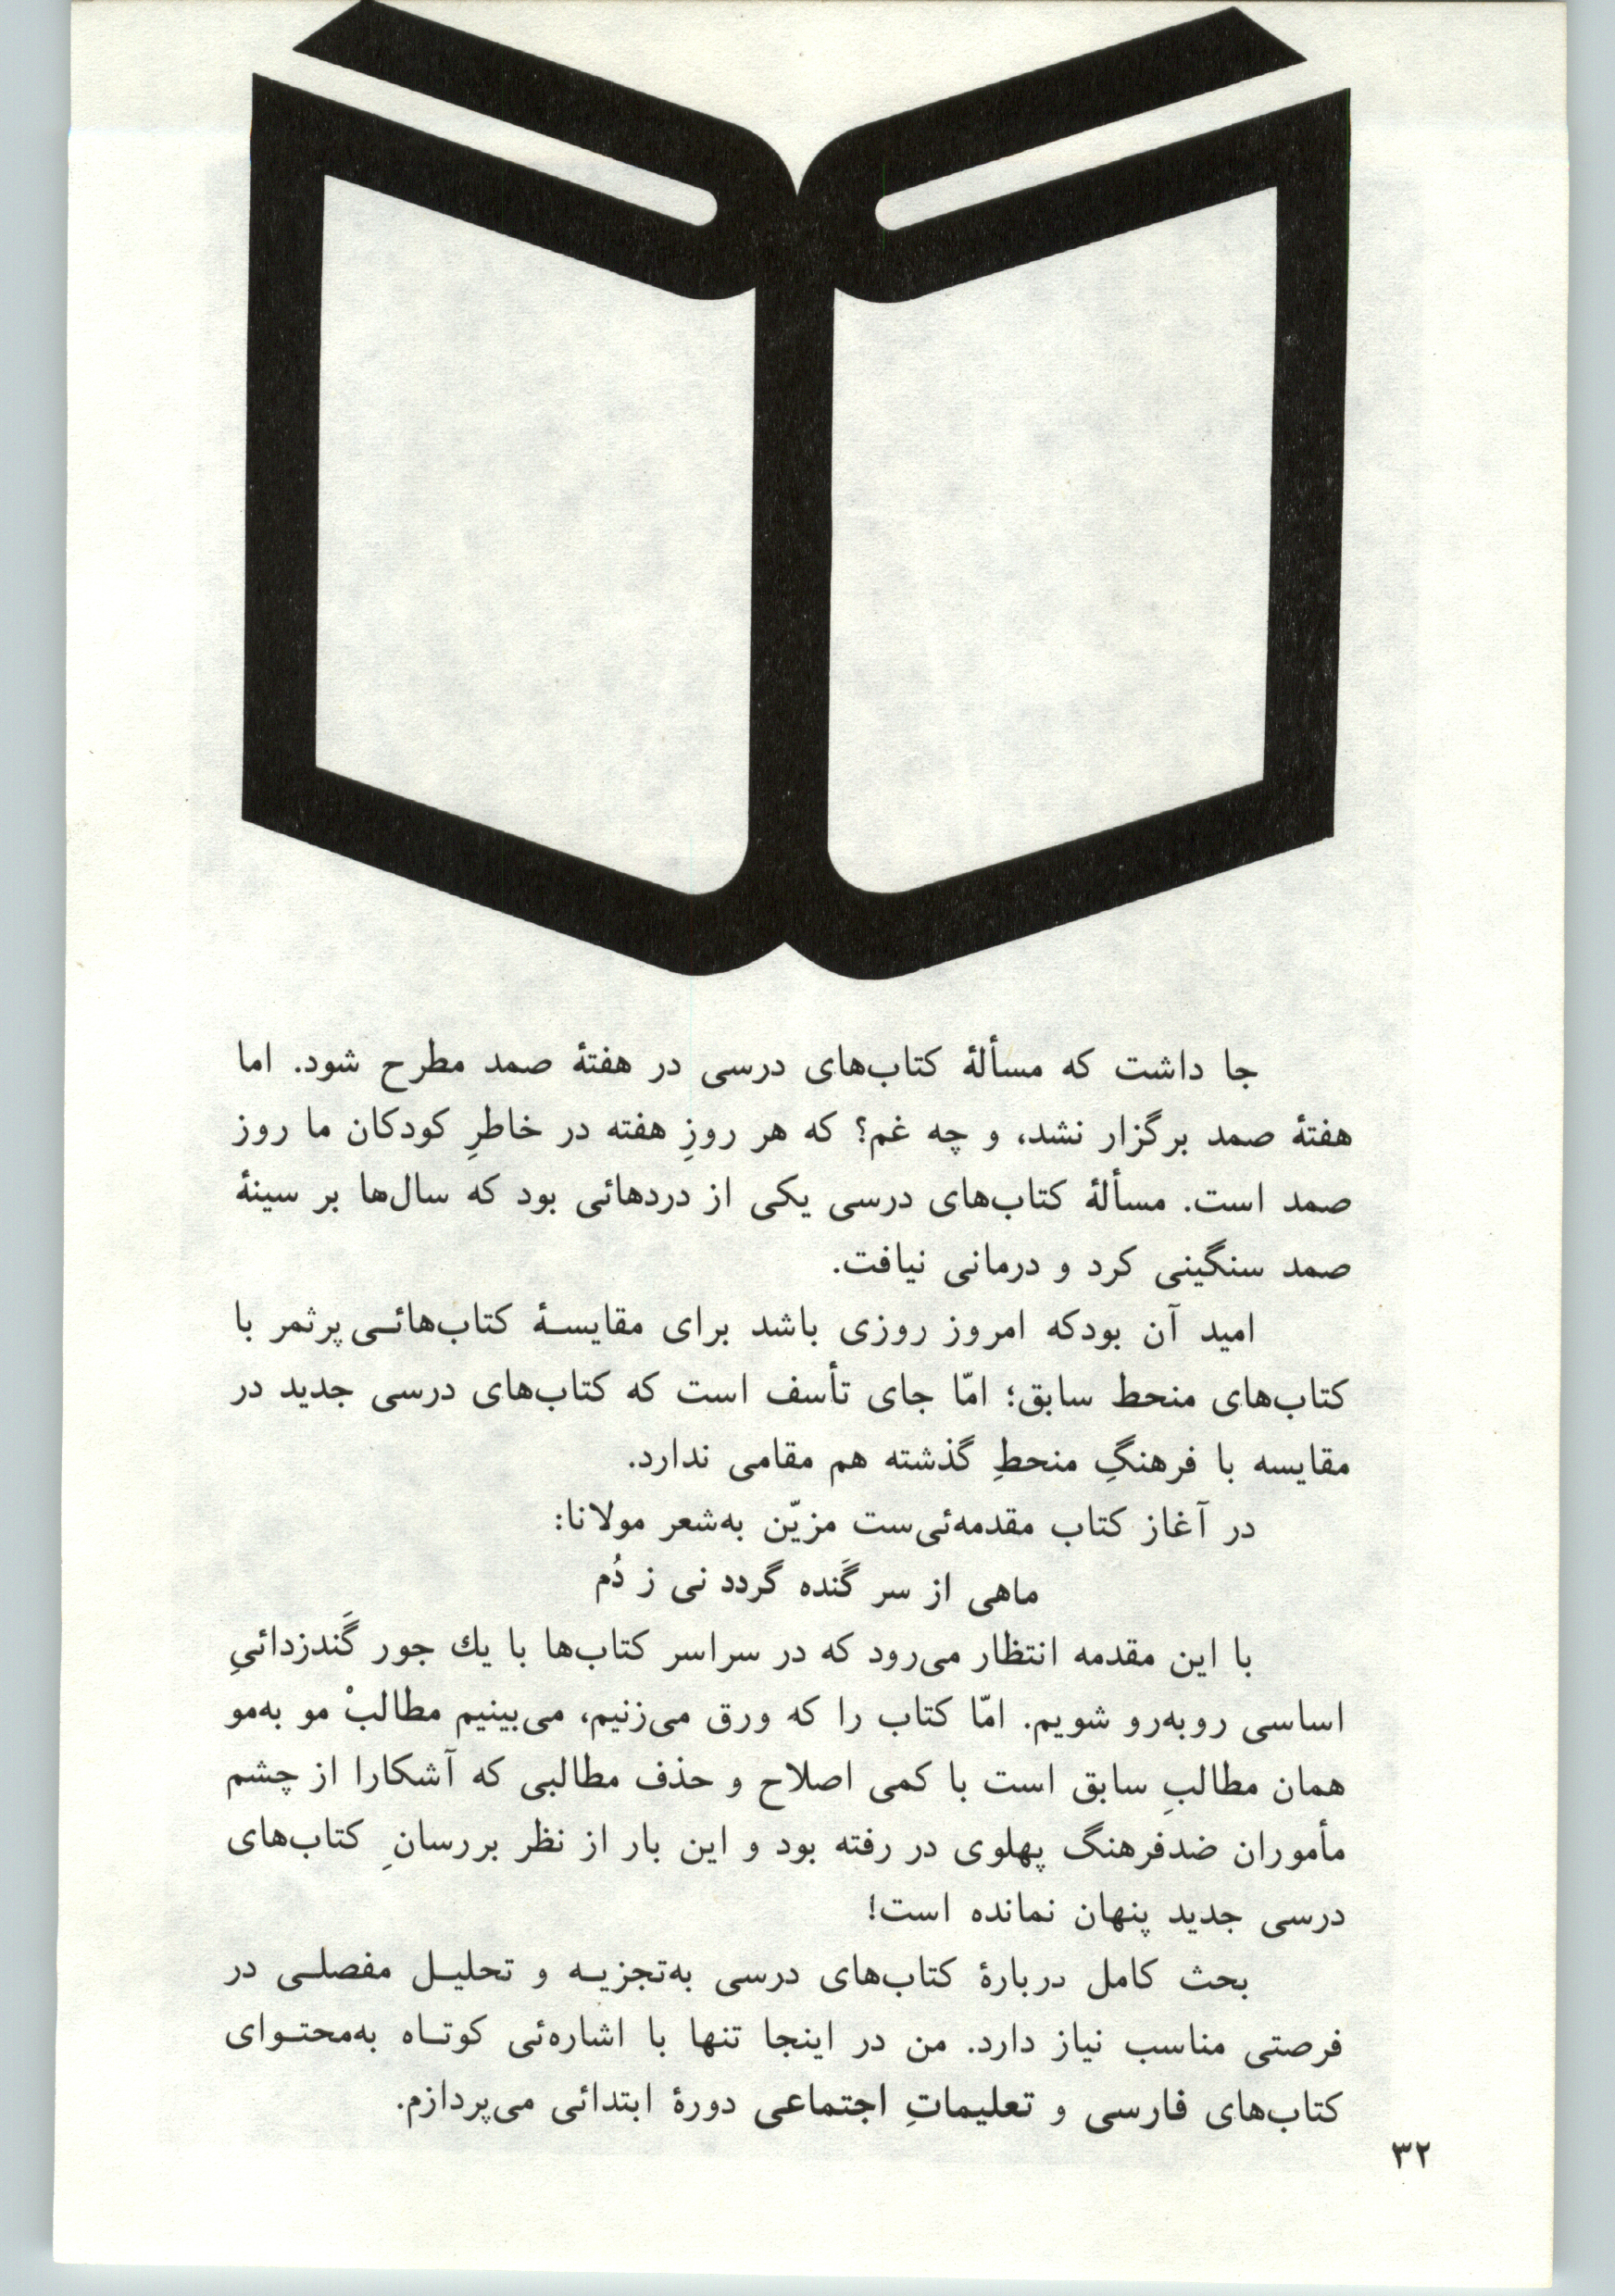 جا داشت که مسألهٔ کتاب‌های درسی در هفتهٔ صمد مطرح شود. اما
هفتهٔ صمد برگزار نشد، و چه غم؟ که هر روزِ هفته در خاطرِ کودکان ما روز
صمد است. مسألهٔ کتاب‌های درسی یکی از دردهائی بود که سال‌ها بر سینهٔ
صمد سنگینی کرد و درمانی نیافت.
امید آن بودکه امروز روزی باشد برای مقایسـهٔ کتاب‌هائـی پرثمر با
کتاب‌های منحط سابق؛ امّا جای تأسف است که کتاب‌های درسی جدید در
مقایسه با فرهنگِ منحطِ گذشته هم مقامی ندارد.
در آغاز کتاب مقدمه‌ئی‌ست مزیّن به‌شعر مولانا:
ماهی از سر گَنده گردد نی ز دُم
با این مقدمه انتظار می‌رود که در سراسر کتاب‌ها با یك جور گَندزدائیِ
اساسی روبه‌رو شویم. امّا کتاب را که ورق می‌زنیم، می‌بینیم مطالبْ مو به‌مو
همان مطالبِ سابق است با کمی اصلاح و حذف مطالبی که آشکارا از چشم
مأموران ضدفرهنگ پهلوی در رفته بود و این بار از نظر بررسانِ کتاب‌های
درسی جدید پنهان نمانده است!
بحث کامل دربارهٔ کتاب‌های درسی به‌تجزیـه و تحلیـل مفصلـی در
فرصتی مناسب نیاز دارد. من در اینجا تنها با اشاره‌ئی کوتـاه به‌محتـوای
کتاب‌های فارسی و تعلیماتِ اجتماعی دورهٔ ابتدائی می‌پردازم.
۳۲